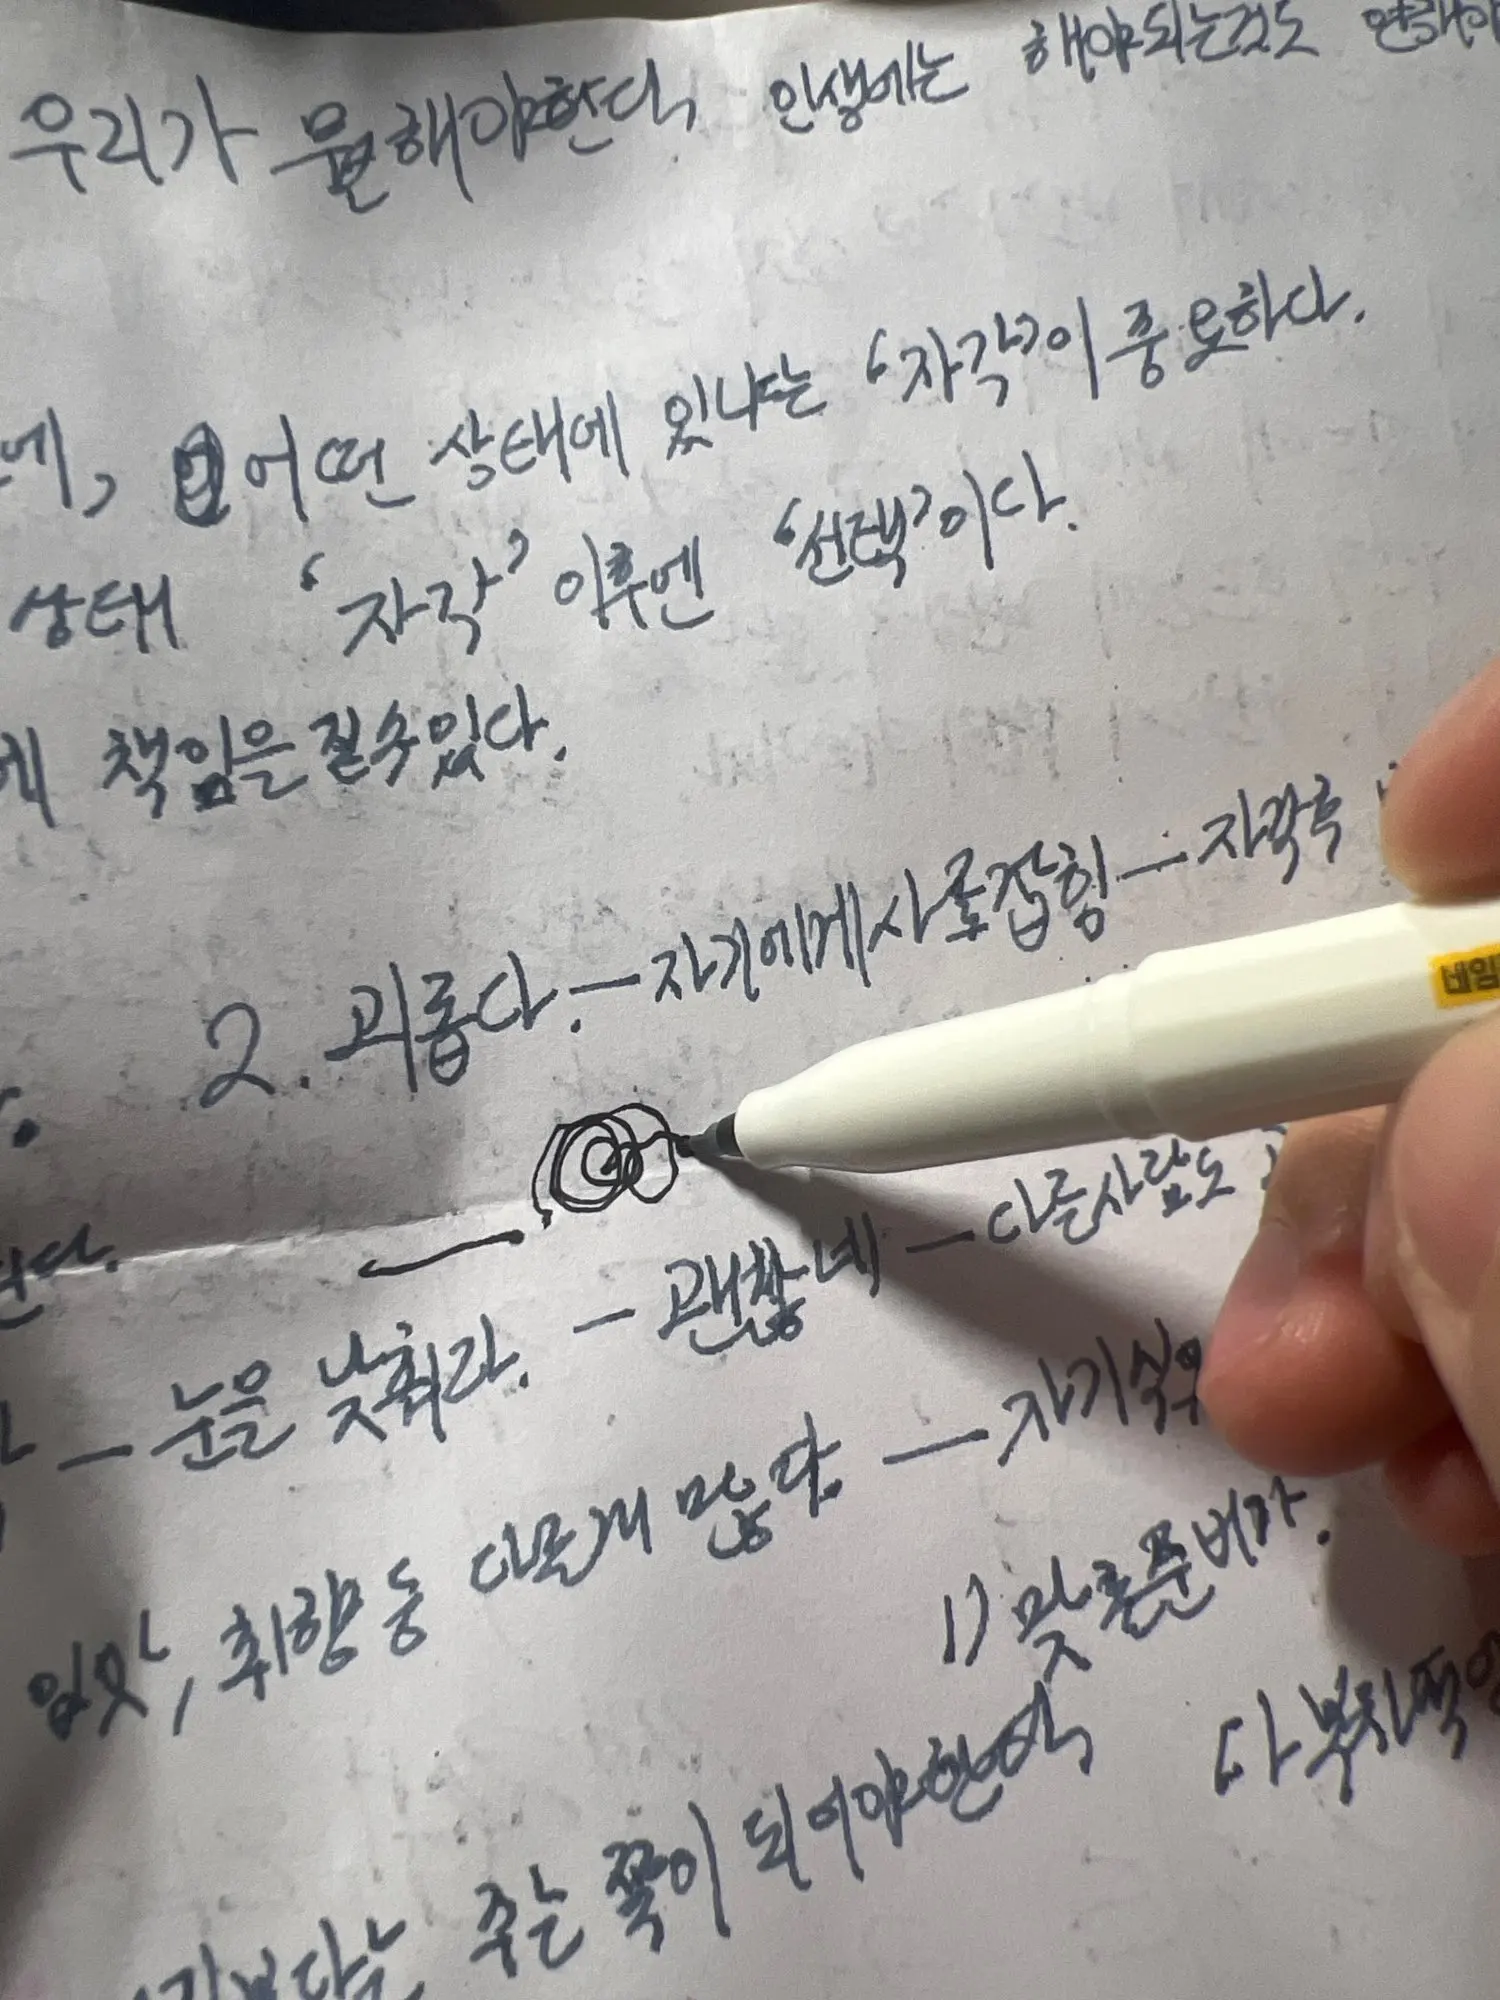 우리가 뭘해야한다, 인생에는 해야되는것도
에, 어떤 상태에 있냐는 '자각'이 중요하다.
상태 '자각' 이후엔 '선택'이다.
에 책임을 질수있다.
2. 괴롭다. - 자기에게 사로잡힘 - 자각후
- 눈을 맞춰라. - 괜찮네 - 다른사람도
입맛, 취향 등 다를게 많다. - 자기
1) 맞출준비가.
주는 쪽이 되어야한다,